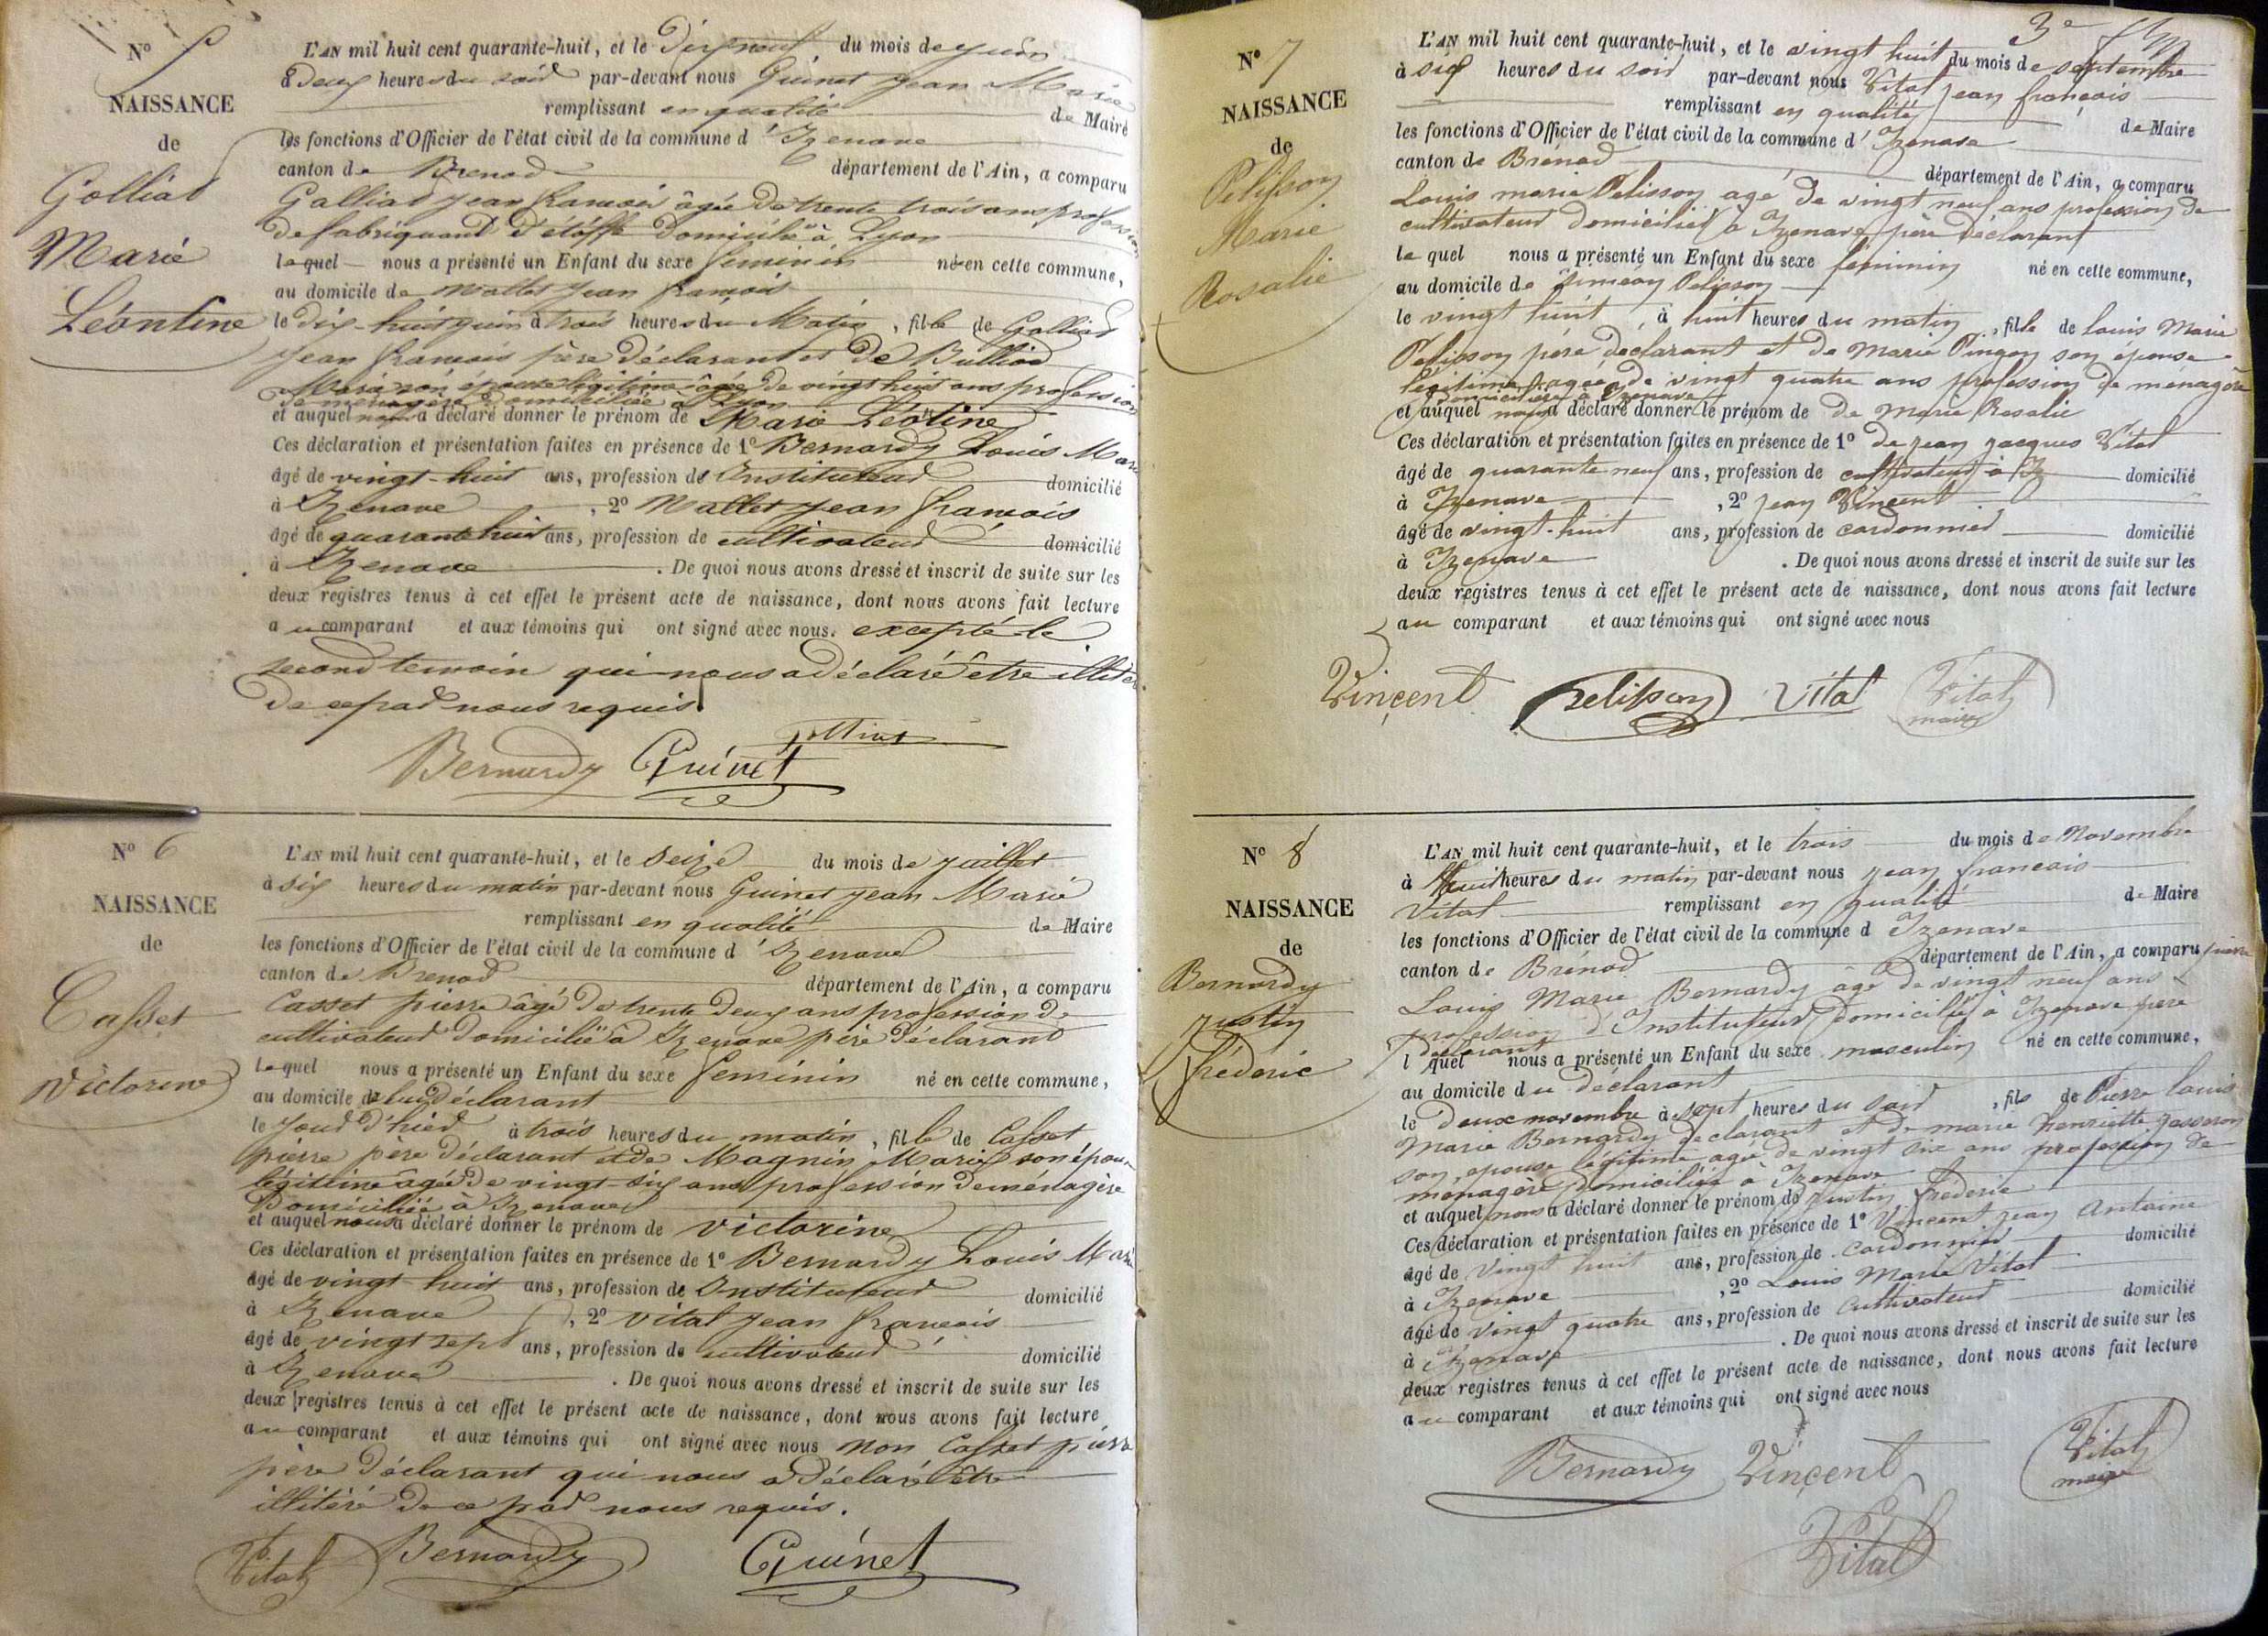 N° 5
NAISSANCE
de
Golliat
Marie
Léontine
L'AN mil huit cent quarante-huit, et le dix neuf du mois de juin
à deux heures du soir par-devant nous Guinet Jean Marie
remplissant en qualité de Maire
les fonctions d'Officier de l'état civil de la commune d'Izenave
canton de Brenod département de l'Ain, a comparu
Golliat Jean francois âgé de trente trois ans profession
de fabriquant d'étoffe domicilié à Lyon
lequel nous a présenté un Enfant du sexe feminin né en cette commune,
au domicile de Mallet Jean francois
le dix-huit juin à trois heures du Matin, fille de Golliat
Jean francois père déclarant et de Bulliod
Marie son épouse légitime âgée de vingt huit ans profession
de ménagère domiciliée à Lyon
et auquel nous a déclaré donner le prénom de Marie Léotine
Ces déclaration et présentation faites en présence de 1° Bernardy Louis Marie
âgé de vingt-huit ans, profession de Instituteur domicilié
à Izenave, 2° Mallet Jean francois
âgé de quarante huit ans, profession de cultivateur domicilié
à Izenave. De quoi nous avons dressé et inscrit de suite sur les
deux registres tenus à cet effet le présent acte de naissance, dont nous avons fait lecture
au comparant et aux témoins qui ont signé avec nous. excepté le
second temoin qui nous a déclaré être illitéré
de ce par nous requis
Golliat
Bernardy Guinet
N° 6
NAISSANCE
de
Casset
Victorine
L'AN mil huit cent quarante-huit, et le seize du mois de juillet
à six heures du matin par-devant nous Guinet Jean Marie
remplissant en qualité de Maire
les fonctions d'Officier de l'état civil de la commune d'Izenave
canton de Brenod département de l'Ain, a comparu
Casset pierre âgé de trente deux ans profession de
cultivateur domicilié à Izenave père déclarant
lequel nous a présenté un Enfant du sexe feminin né en cette commune,
au domicile de lui déclarant
le jour d'hier à trois heures du matin, fille de Casset
pierre père déclarant et de Magnin Marie son épouse
légitime âgée de vingt-six ans profession de ménagère
domiciliée à Izenave
et auquel nous a déclaré donner le prénom de victorine
Ces déclaration et présentation faites en présence de 1° Bernardy Louis Marie
âgé de vingt huit ans, profession de Instituteur domicilié
à Izenave, 2° vital Jean francois
âgé de vingt sept ans, profession de cultivateur domicilié
à Izenave. De quoi nous avons dressé et inscrit de suite sur les
deux registres tenus à cet effet le présent acte de naissance, dont nous avons fait lecture
au comparant et aux témoins qui ont signé avec nous non Casset pierre
père déclarant qui nous a déclaré être
illitéré de ce par nous requis.
Vital Bernardy Guinet
3e
N° 7
NAISSANCE
de
Pelisson
Marie
Rosalie
L'AN mil huit cent quarante-huit, et le vingt huit du mois de septembre
à six heures du soir par-devant nous Vital jean françois
remplissant en qualité de Maire
les fonctions d'Officier de l'état civil de la commune d'Izenave
canton de Brénod département de l'Ain, a comparu
Louis marie Pelisson agé de vingt neuf ans profession de
cultivateur domicilié à Izenave père déclarant
lequel nous a présenté un Enfant du sexe feminin né en cette commune,
au domicile de Siméon Pelisson
le vingt huit, à huit heures du matin, fille de louis Marie
Pelisson père déclarant et de Marie Pingon son épouse
légitime agée de vingt quatre ans profession de ménagère
domiciliée à Izenave
et auquel nous a déclaré donner le prénom de de Marie Rosalie
Ces déclaration et présentation faites en présence de 1° de jean jacques Vital
âgé de quarante neuf ans, profession de cultivateur à Iz domicilié
à Izenave, 2° jean Vincent
âgé de vingt-huit ans, profession de cordonnier domicilié
à Izenave. De quoi nous avons dressé et inscrit de suite sur les
deux registres tenus à cet effet le présent acte de naissance, dont nous avons fait lecture
au comparant et aux témoins qui ont signé avec nous
Vinçent Pelisson Vital Vital
maire
N° 8
NAISSANCE
de
Bernardy
Justin
frédéric
L'AN mil huit cent quarante-huit, et le trois du mois de Novembre
à huit heures du matin par-devant nous jean francois
Vital remplissant en qualité de Maire
les fonctions d'Officier de l'état civil de la commune d Izenave
canton de Brénod département de l'Ain, a comparu pierre
Louis Marie Bernardy âgé de vingt neuf ans
profession d'Instituteur domicilié à Izenave père
déclarant
l quel nous a présenté un Enfant du sexe masculin né en cette commune,
au domicile du déclarant
le deux novembre à sept heures du soir, fils de Pierre louis
Marie Bernardy declarant et de marie henriette Jasseron
son epouse légitime agé de vingt six ans profession de
ménagère domiciliée à Izenave
et auquel nous a déclaré donner le prénom de Justin fréderic
Ces déclaration et présentation faites en présence de 1° Vincent jean Antoine
âgé de vingt huit ans, profession de Cordonnier domicilié
à Izenave, 2° Louis Marie Vital
âgé de vingt quatre ans, profession de Cultivateur domicilié
à Izenave. De quoi nous avons dressé et inscrit de suite sur les
deux registres tenus à cet effet le présent acte de naissance, dont nous avons fait lecture
au comparant et aux témoins qui ont signé avec nous
Bernardy Vinçent Vital
maire
Vital